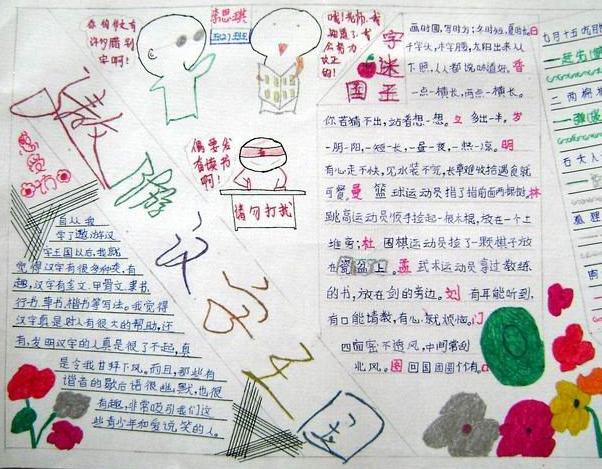 蔡思琪
五(2)班
你的作文有
许多错别
字啊!
哦!老师,我
知道了,我
会努力
改正
的!
遨游汉字王国
感受
偶要发
奋读书
啊!
请勿打我
自从我
学了遨游汉
字王国以后,我就
觉得汉字有很多种类,有
趣,汉字有金文、甲骨文、隶书
行书、草书、楷书等写法。我觉得
汉字真是对人有很大的帮助,还
有,发明汉字的人真是很了不起,真
是令我甘拜下风。而且,那些有
谐音的歇后语很幽默,也很
有趣,非常吸引我们这
些青少年和爱说笑的人。
字谜
王国
画时圆,写时方;冬时短,夏时长。日
千字头,木字腰,太阳出来从
下照,人人都说味道好。香
一点一横长,两点一横长。
你若猜不出,站着想一想。
多出一半。岁
一阴一阳,一短一长,一昼一夜,一热一凉。明
有心走不快,见水装不完,长草难收拾遇食就
可餐。曼
篮球运动员指了指前面两棵树。林
跳高运动员顺手捡起一根木棍,放在一个土
堆旁;杜
围棋运动员捡了一颗棋子放
在瓷盆上。孟
武术运动员拿过教练
的书,放在剑的旁边。刘
有耳能听到,
有口能请教,有心就烦恼。门
四面密不透风,中间常刮
北风。图
七月十五